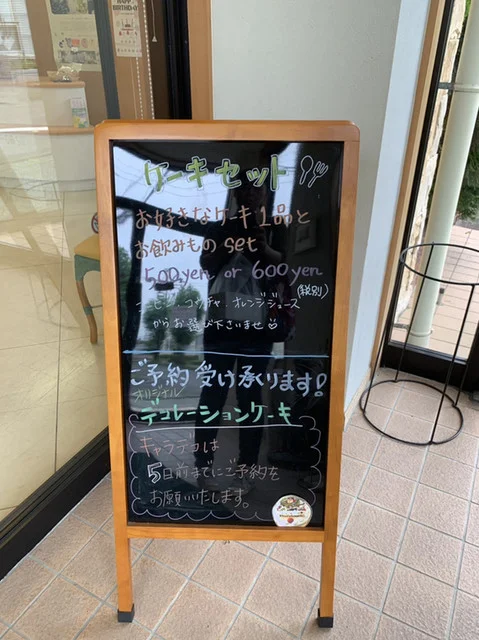 ケーキセット
お好きなケーキ1品と
お飲みもの set
500yen or 600yen
(税別)
コーヒー、コウチャ、オレンジジュース
からお選び下さいませ
ご予約受け承ります!
オリジナル
デコレーションケーキ
キャラデコは
5日前までにご予約を
お願いいたします。